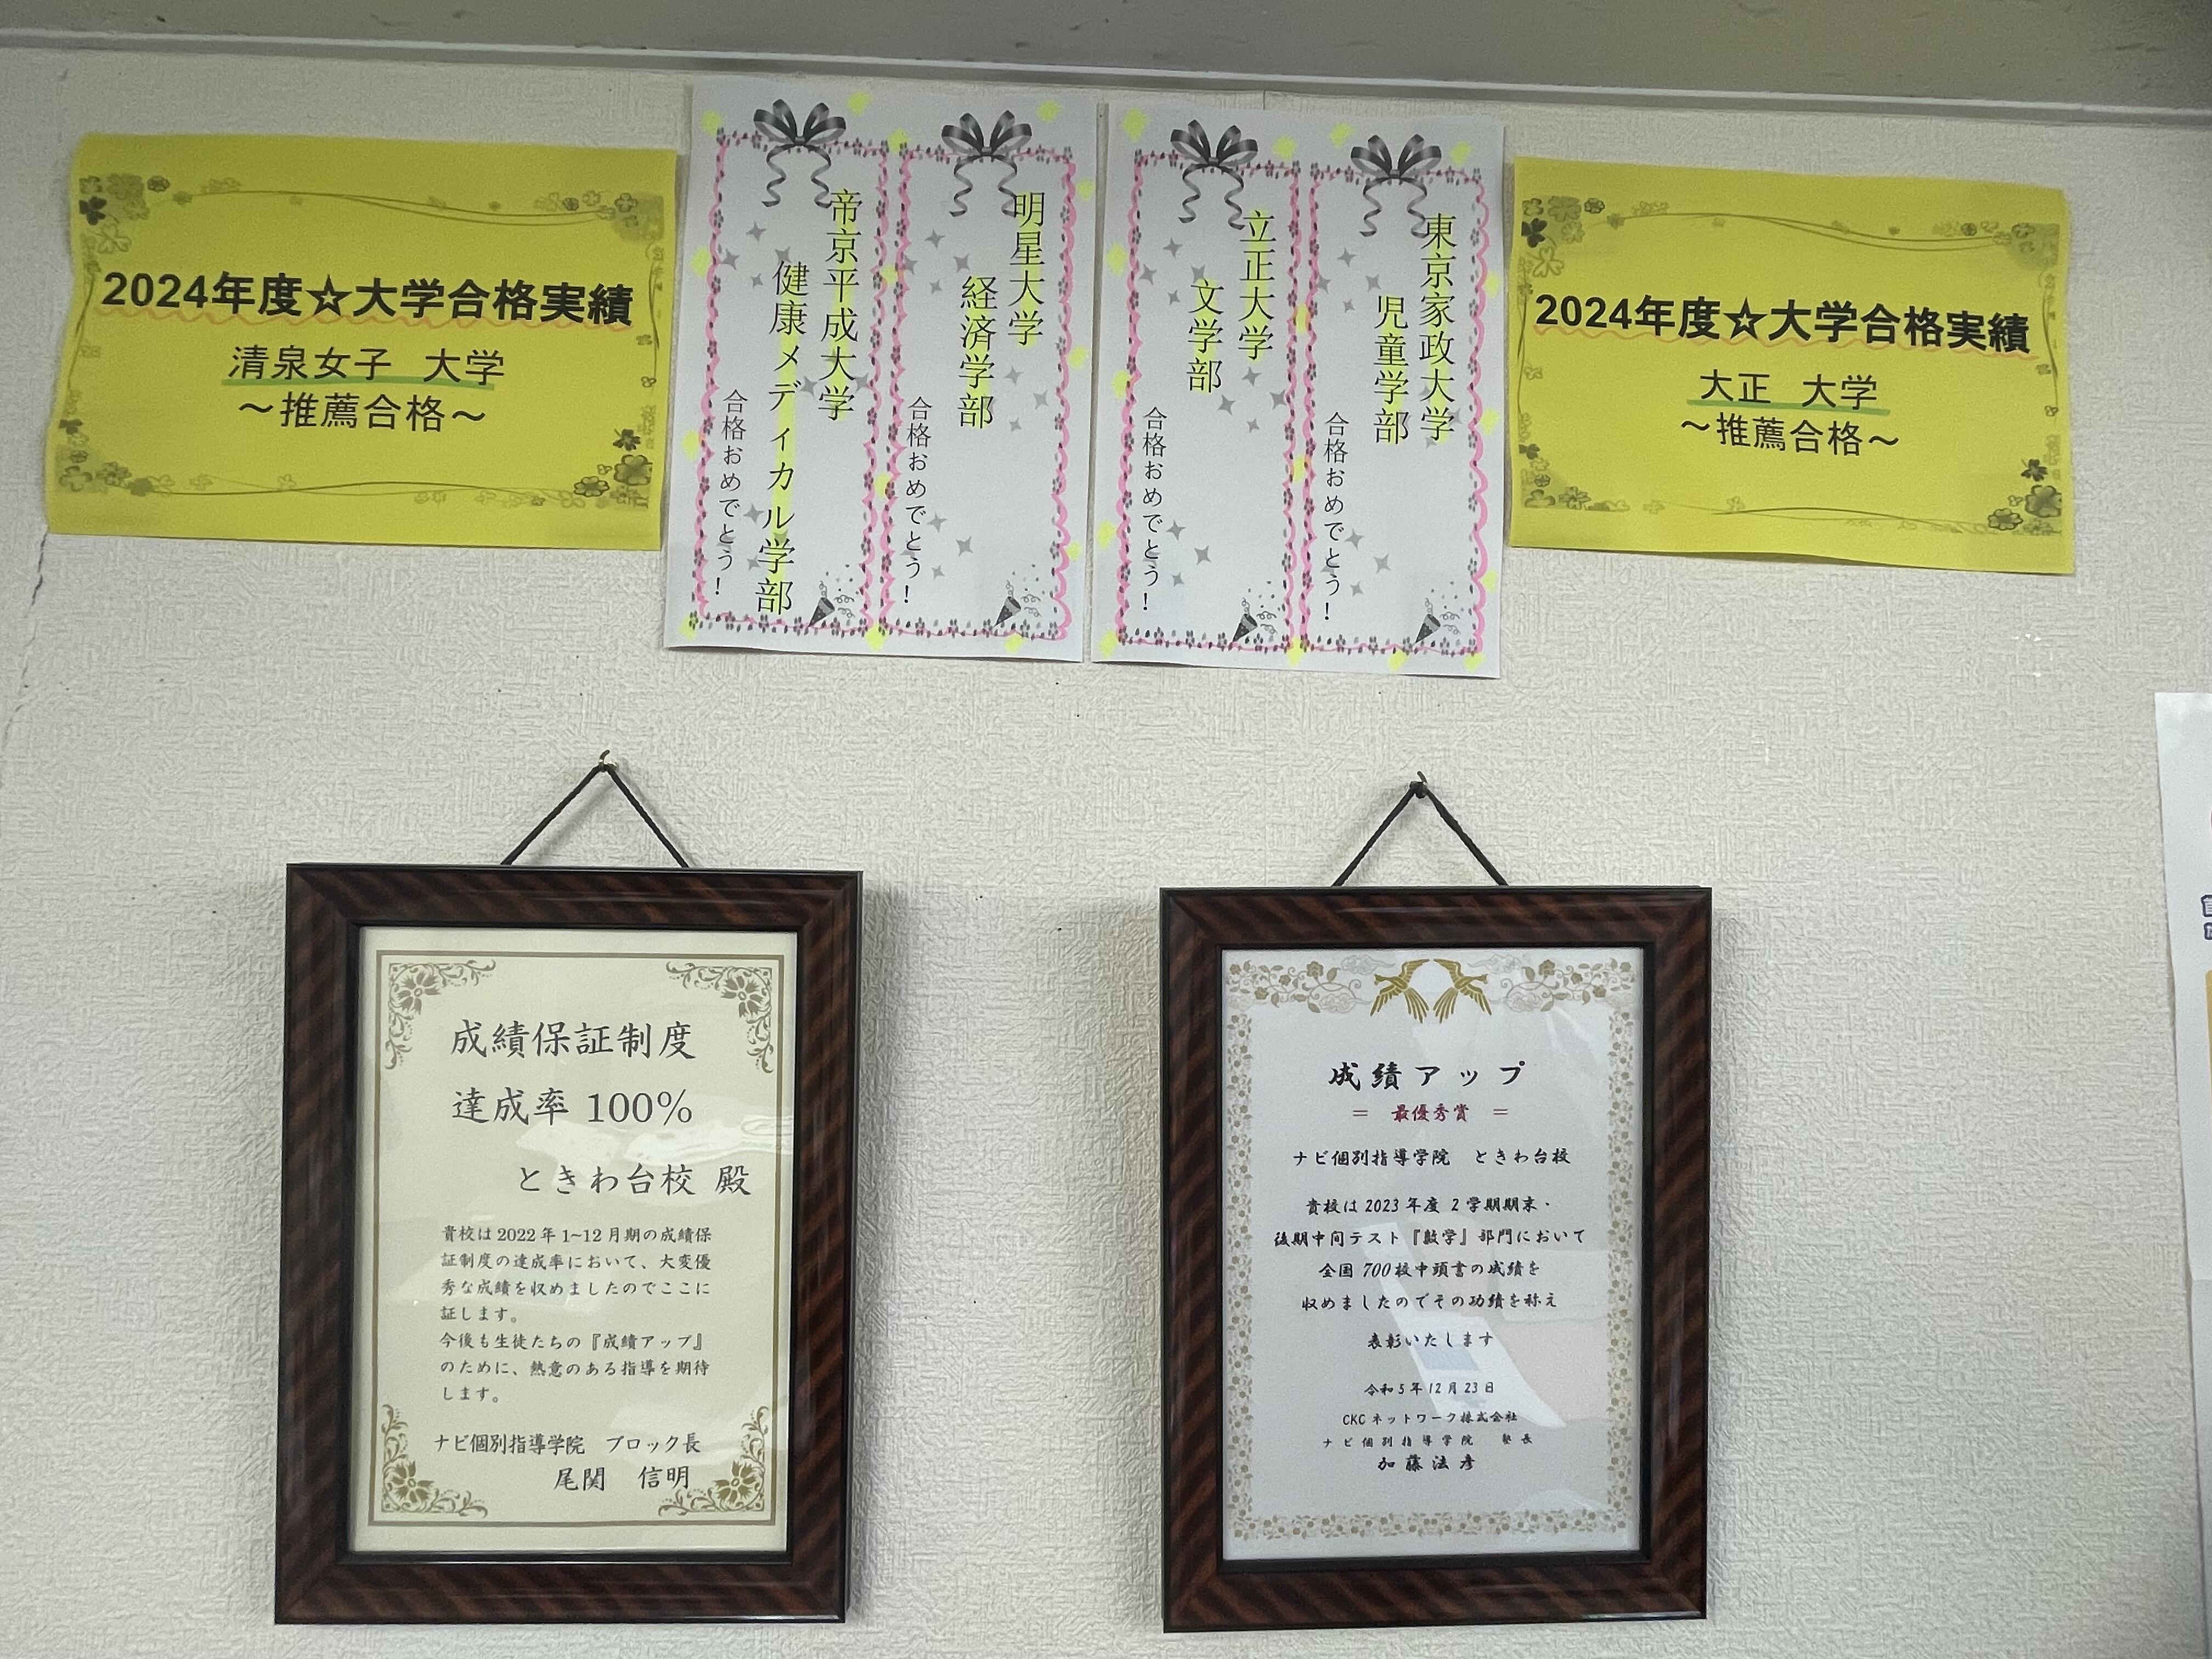 2024年度☆大学合格実績
清泉女子　大学
～推薦合格～
明星大学
経済学部
合格おめでとう！
帝京平成大学
健康メディカル学部
合格おめでとう！
東京家政大学
児童学部
合格おめでとう！
立正大学
文学部
合格おめでとう！
2024年度☆大学合格実績
大正　大学
～推薦合格～
成績保証制度
達成率 100%
ときわ台校 殿
貴校は 2022 年 1~12 月期の成績保
証制度の達成率において、大変優
秀な成績を収めましたのでここに
証します。
今後も生徒たちの『成績アップ』
のために、熱意のある指導を期待
します。
ナビ個別指導学院　ブロック長
尾関　信明
成績アップ
＝　最優秀賞　＝
ナビ個別指導学院　ときわ台校
貴校は 2023 年度 2 学期期末・
後期中間テスト『数学』部門において
全国 700校中頭書の成績を
収めましたのでその功績を称え
表彰いたします
令和5年12月23日
CKC ネットワーク株式会社
ナビ個別指導学院　塾長
加藤法彦